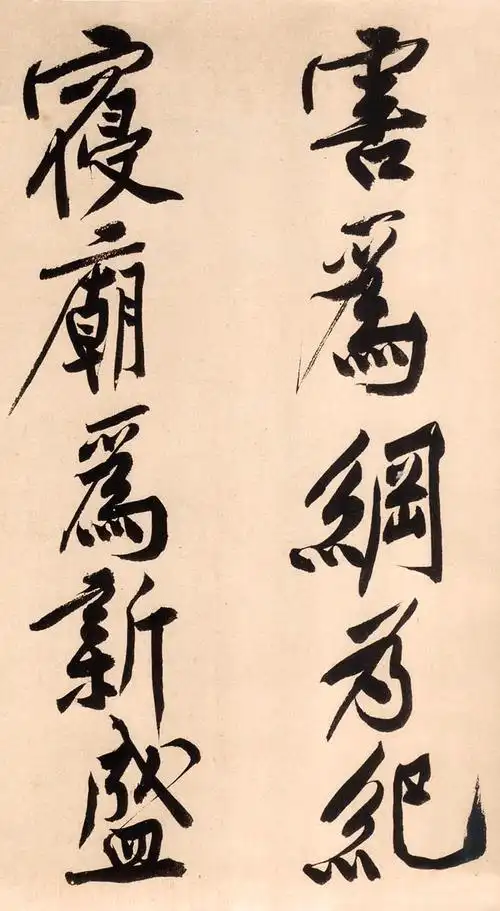 害爲綱为紀
寑廟爲新盛